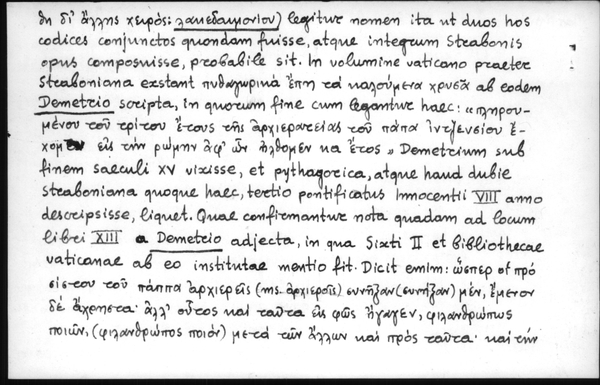 δη δι' ἄλλης χειρός: λακεδαιμονίου) legitur nomen ita ut duos hos
codices conjunctos quondam fuisse, atque integrum Strabonis
opus composuisse, probabile sit. In volumine vaticano praeter
Straboniana exstant πυθαγωρικά ἔπη τὰ καλούμενα χρυσᾶ ab eodem
Demetrio scripta, in quorum fine cum legantur haec: «πληρου-
μένου τοῦ τρίτου ἔτους τῆς ἀρχιερατείας τοῦ πάπα ἰντζενσίου ἔ-
εἰς τὴν ρώμην ἀφ' ὧν ἤλθομεν κα ἔτος» Demetrium sub
finem saeculi XV vixisse, et pythagorica, atque haud dubie
Straboniana quoque haec, tertio pontificatus Innocentii VIII anno
descripsisse, liquet. Quae confirmantur nota quadam ad locum
libri XIII a Demetrio adjecta, in qua Sixti II et bibliothecae
vaticanae ab eo institutae mentio fit. Dicit enim: ὥσπερ οἱ πρὸ
σίστου τοῦ πάππα ἀρχιερεῖς (ms. ἀρχιεροῖς) συνῆξαν (συνήξαν) μέν, ἔμενον
δέ ἄχρηστα· ἀλλ' οὗτος καὶ ταῦτα εἰς φῶς ἤγαγεν, φιλανθρώπως
ποιῶν, (φιλανθρώπος ποιόν) μετὰ τῶν ἄλλων καὶ πρὸς ταῦτα· καὶ τὴν